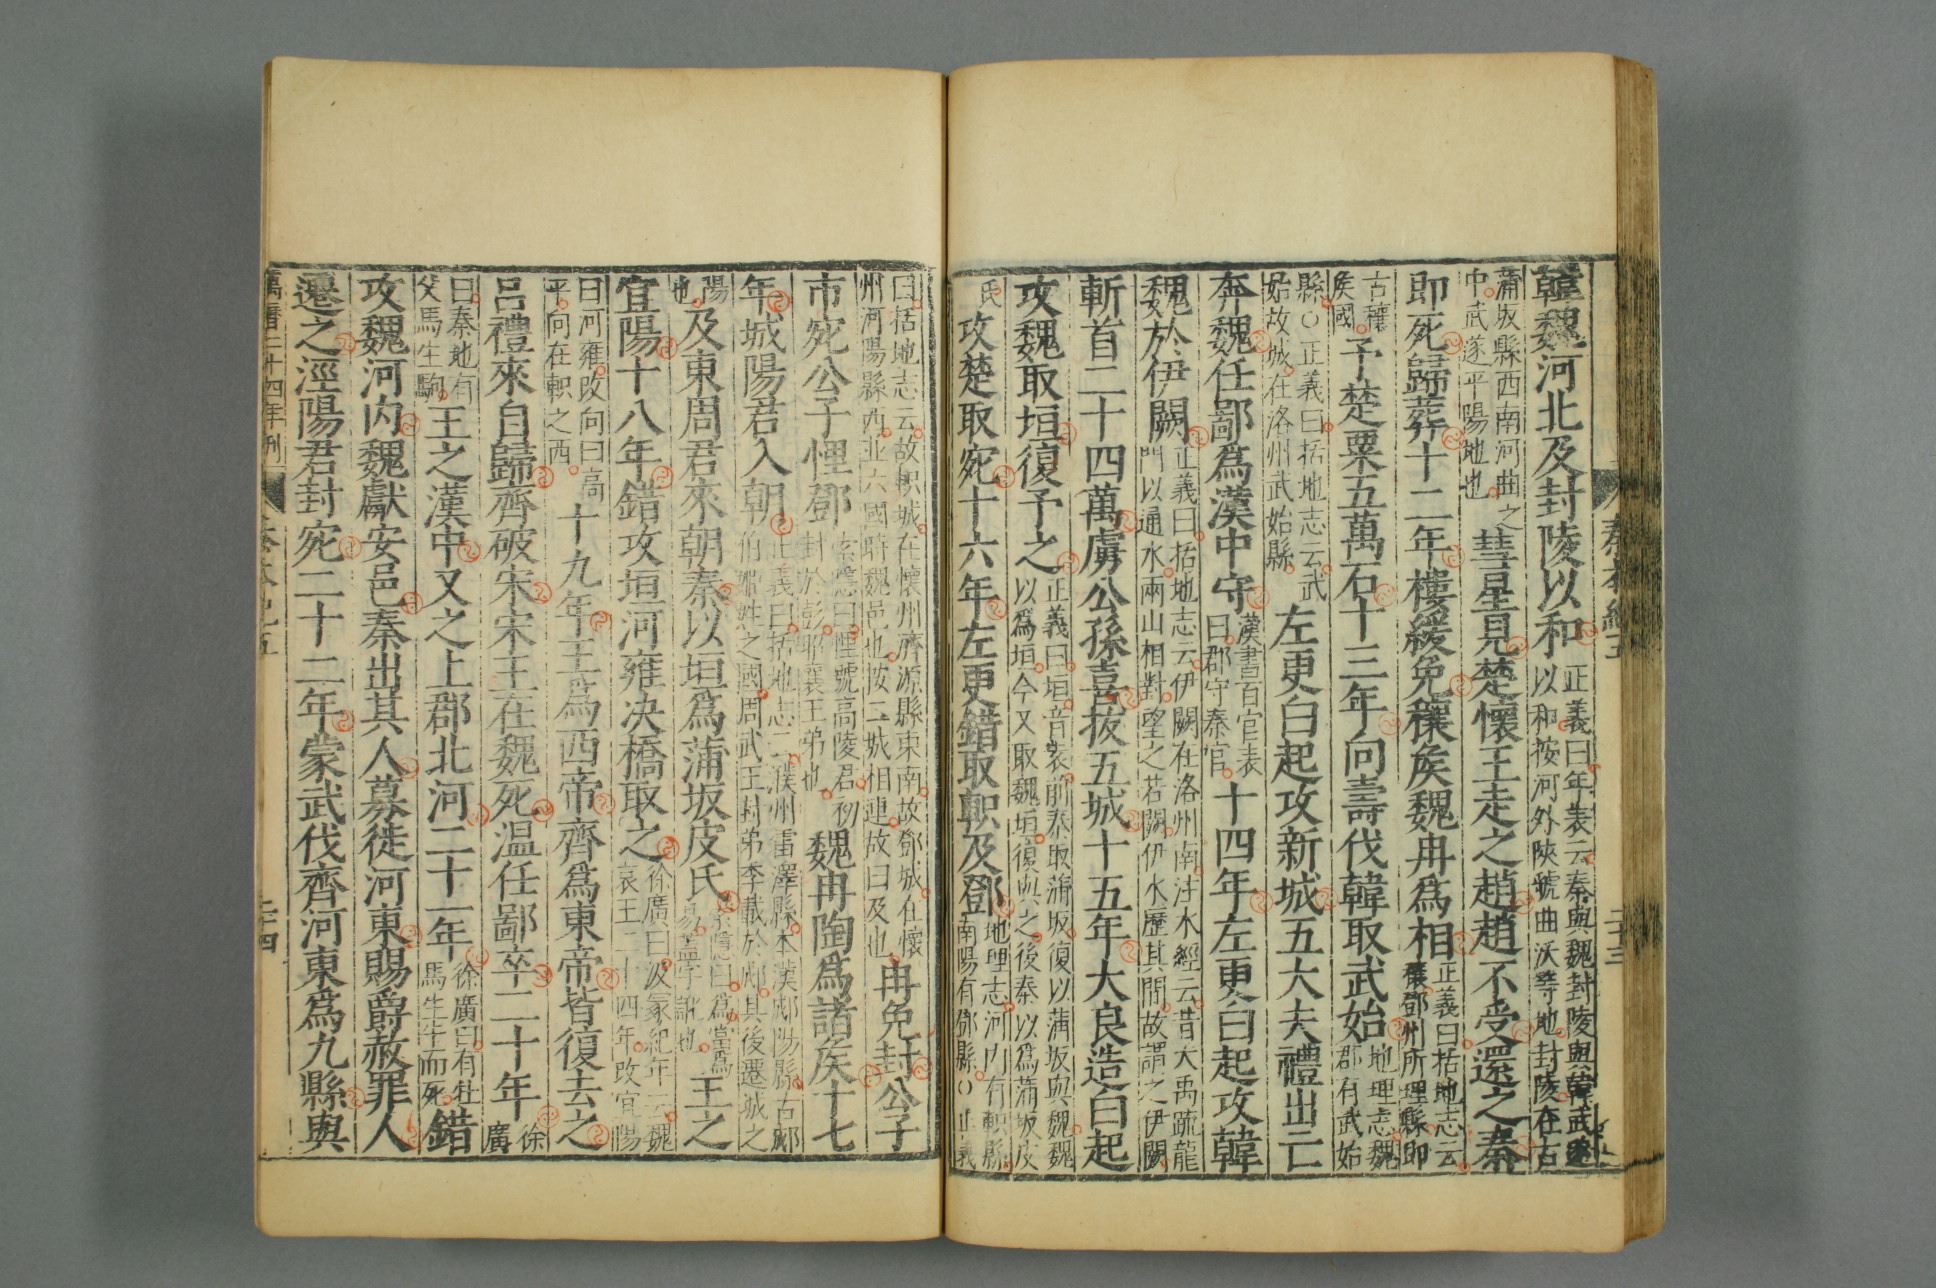 秦本紀五 二十三
韓魏河北及封陵以和正義曰年表云秦與魏封陵與韓武遂以和按河外陝虢曲沃等地封陵在古
蒲坂縣西南河曲之中武遂平陽地也彗星見楚懷王走之趙趙不受還之秦
即死歸葬十二年樓緩免穰矦魏冉爲相正義曰括地志云穰鄧州所理縣即
古穰矦國予楚粟五萬石十三年向壽伐韓取武始地理志魏郡有武始
縣○正義曰括地志云武始故城在洛州武始縣左更白起攻新城五大夫禮出亡
奔魏任鄙爲漢中守漢書百官表曰郡守秦官十四年左更白起攻韓
魏於伊闕正義曰括地志云伊闕在洛州南注水經云昔大禹疏龍門以通水兩山相對望之若闕伊水歷其間故謂之伊闕
斬首二十四萬虜公孫喜拔五城十五年大良造白起
攻魏取垣復予之正義曰垣音袁前秦取蒲坂復以蒲坂與魏魏以爲垣今又取魏垣復與之後秦以爲蒲坂皮
氏攻楚取宛十六年左更錯取軹及鄧地理志河内有軹縣南陽有鄧縣○正義
曰括地志云故軹城在懷州濟源縣東南故鄧城在懷州河陽縣西北六國時魏邑也按二城相連故曰及也冉免封公子
市宛公子悝鄧索隱曰悝號高陵君初封於彭昭襄王弟也魏冉陶爲諸矦十七
年城陽君入朝正義曰括地志云濮州雷澤縣本漢郕陽縣古郕伯姬姓之國周武王封弟季載於郕其後遷城之
陽也及東周君來朝秦以垣爲蒲坂皮氏索隱曰爲當爲易蓋字訛也王之
宜陽十八年錯攻垣河雍决橋取之徐廣曰汲冢紀年云魏哀王二十四年改宜陽
曰河雍改向曰高平向在軹之西十九年王爲西帝齊爲東帝皆復去之
呂禮來自歸齊破宋宋王在魏死温任鄙卒二十年徐廣
曰秦地有父馬生駒王之漢中又之上郡北河二十一年徐廣曰有牡馬生牛而死錯
攻魏河内魏獻安邑秦出其人募徙河東賜爵赦罪人
遷之涇陽君封宛二十二年蒙武伐齊河東爲九縣與
萬曆二十四年刊 秦本紀五 二十四